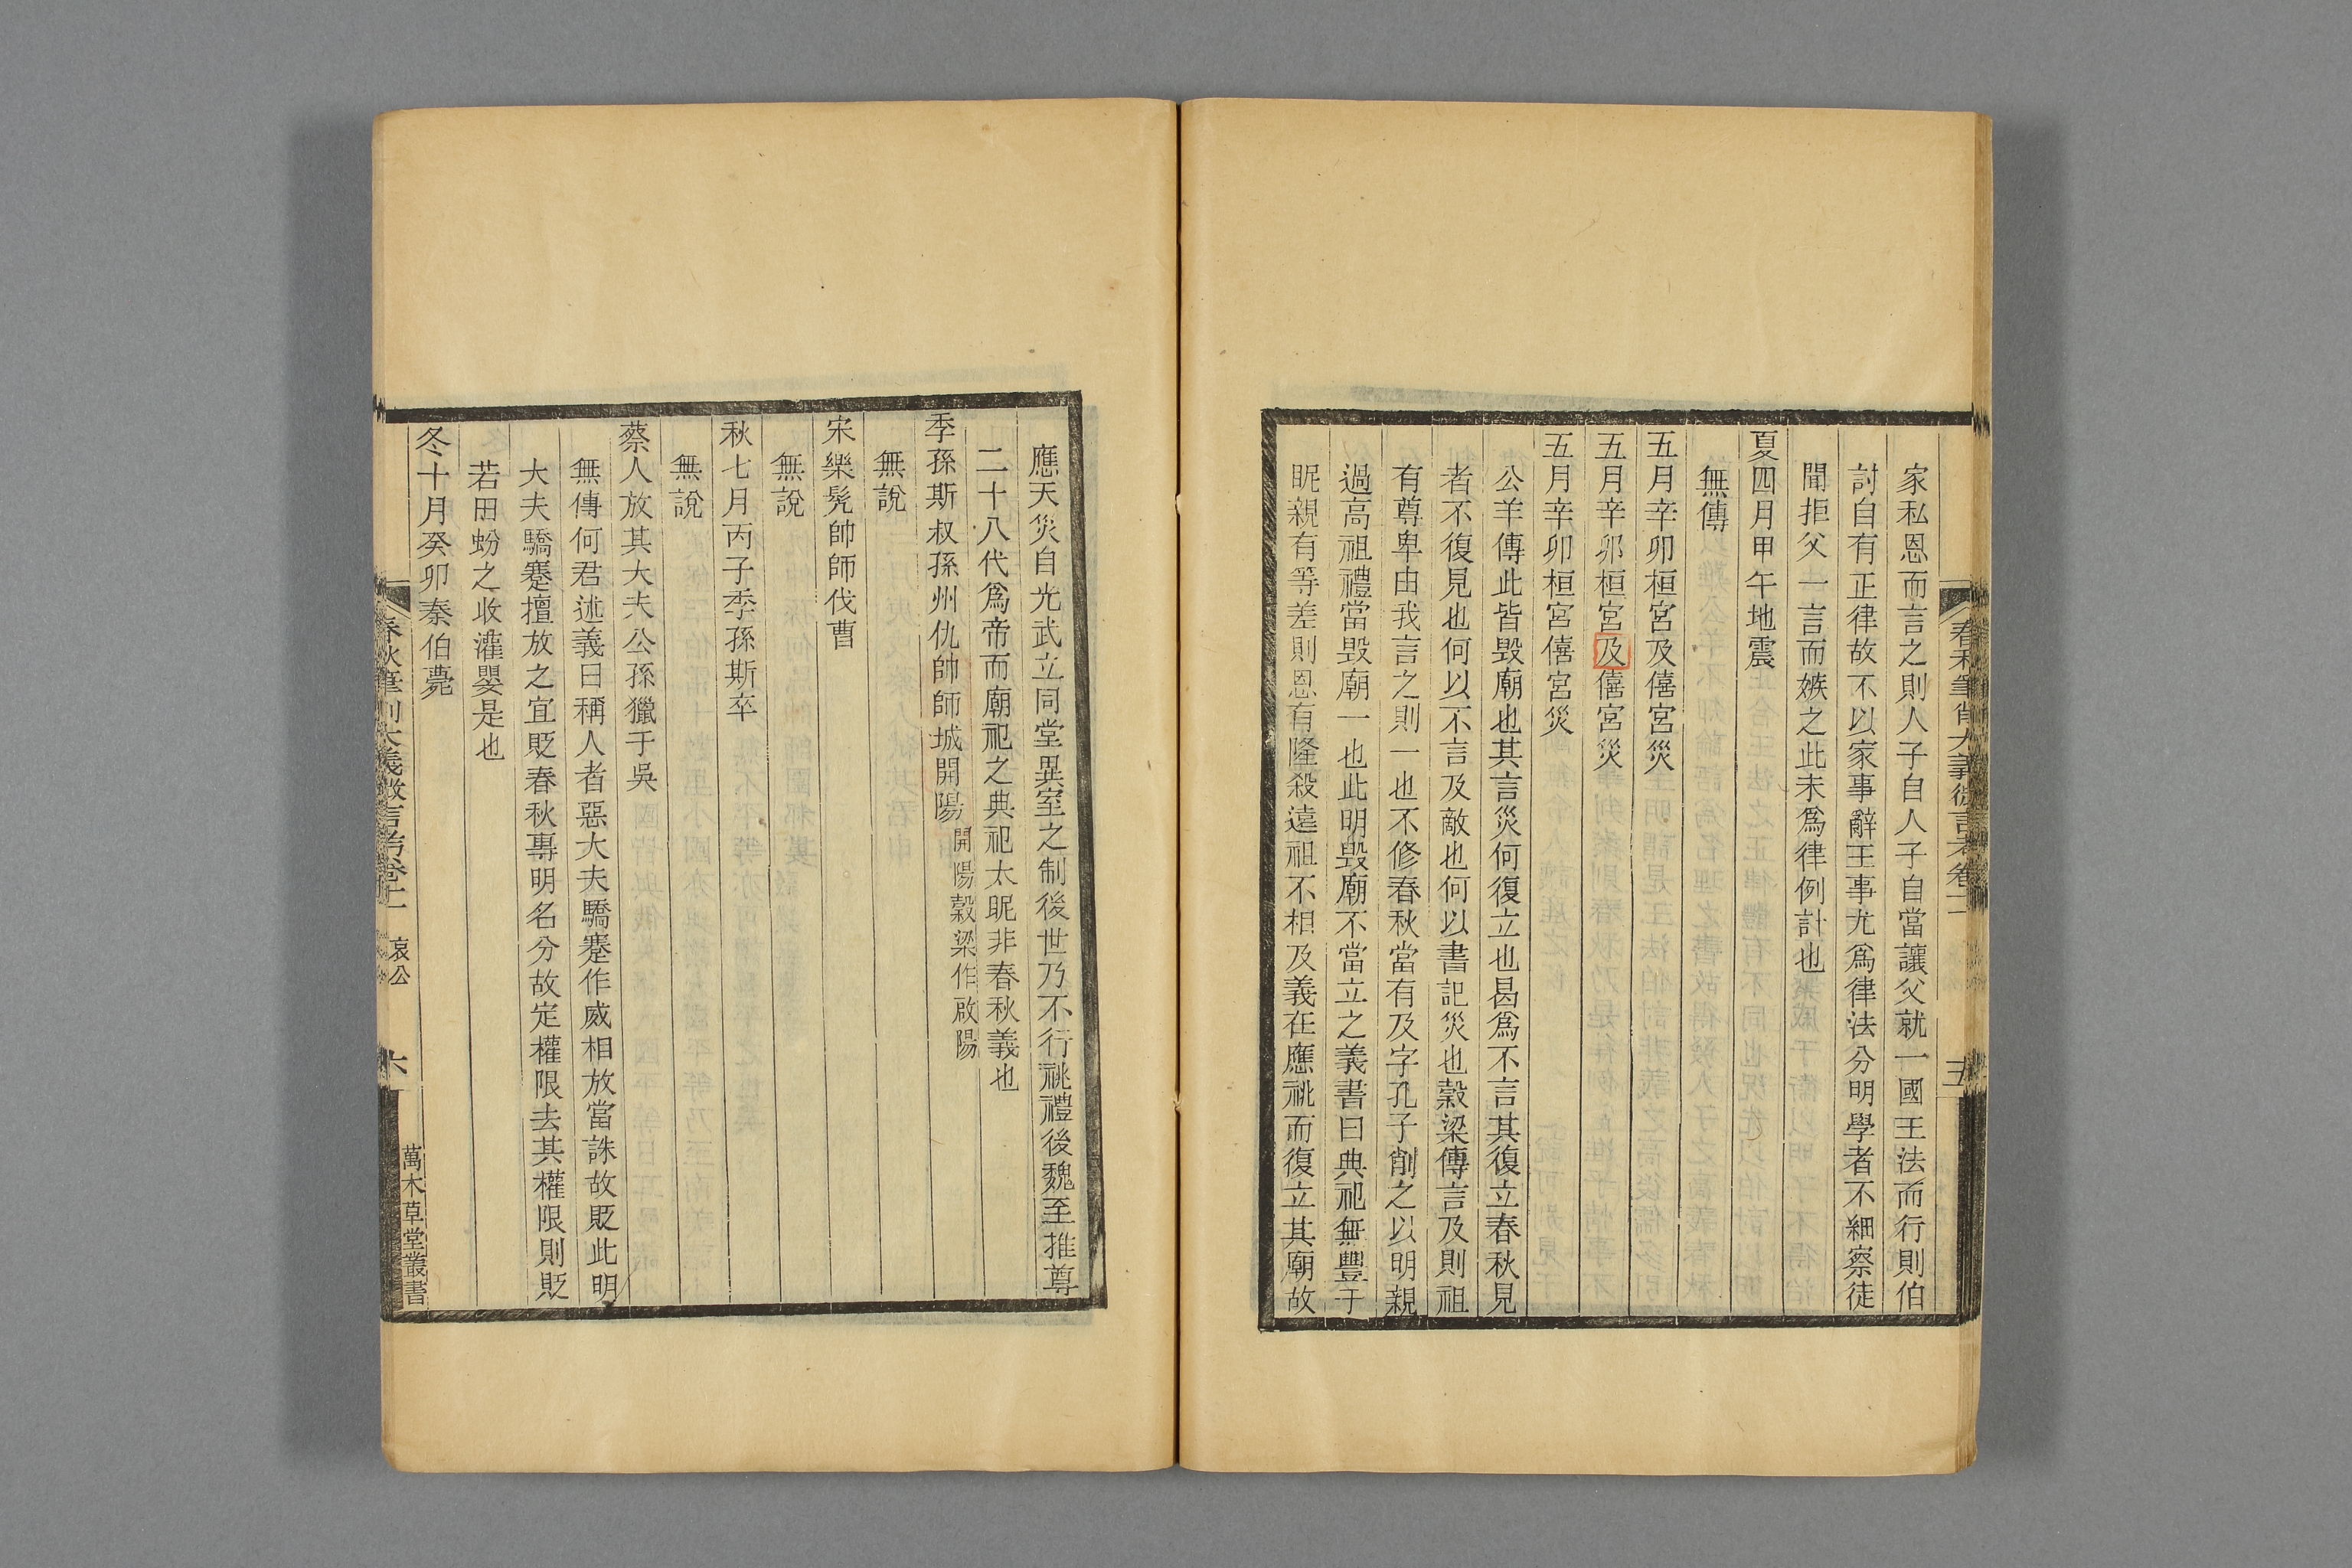 家私恩而言之則人子自人子自當讓父就一國王法而行則伯
討自有正律故不以家事辭王事尤爲律法分明學者不細察徒
聞拒父一言而嫉之此未爲律例計也
夏四月甲午地震
無傳
五月辛卯桓宮及僖宮災
五月辛卯桓宮及僖宮災
五月辛卯桓宮僖宮災
公羊傳此皆毀廟也其言災何復立也曷爲不言其復立春秋見
者不復見也何以不言及敵也何以書記災也穀梁傳言及則祖
有尊卑由我言之則一也不修春秋當有及字孔子削之以明親
過高祖禮當毀廟一也此明毀廟不當立之義書曰典祀無豐于
昵親有等差則恩有隆殺遠祖不相及義在應祧而復立其廟故
春秋筆削大義微言考卷十一
五
應天災自光武立同堂異室之制後世乃不行祧禮後魏至推尊
二十八代爲帝而廟祀之典祀太昵非春秋義也
季孫斯叔孫州仇帥師城開陽開陽穀梁作啟陽
無說
宋樂髡帥師伐曹
無說
秋七月丙子季孫斯卒
無說
蔡人放其大夫公孫獵于吳
無傳何君述義曰稱人者惡大夫驕蹇作威相放當誅故貶此明
大夫驕蹇擅放之宜貶春秋專明名分故定權限去其權限則貶
若田蚡之收灌嬰是也
冬十月癸卯秦伯薨
春秋筆削大義微言考卷十一 哀公
六
萬木草堂叢書